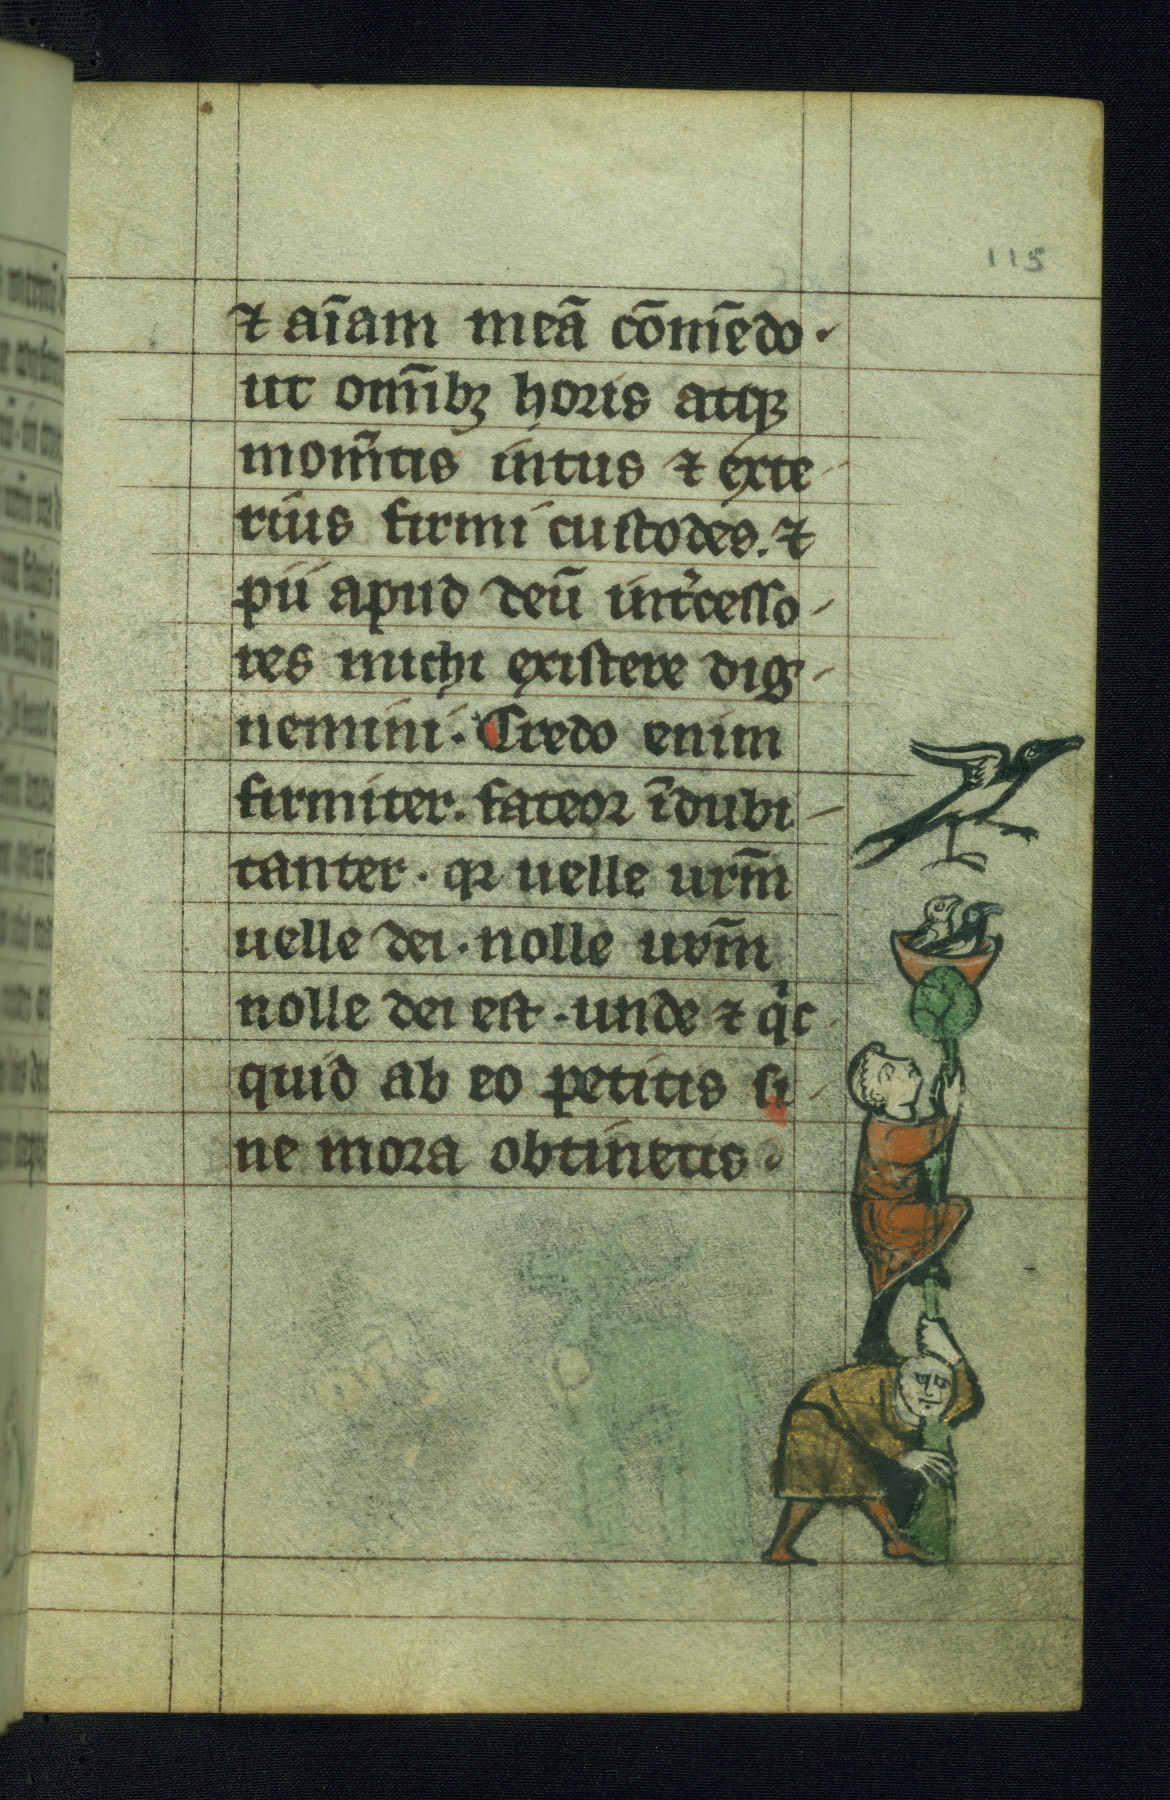 115
⁊ aı̄am meā cōmēdo·
ut om̄ibꝫ horis atqꝫ
mom̄tis intus ⁊ exte
rius firmi custodes. ⁊
pii apud deū int͛cesso
res michi existere dig
nemini· Credo enim
firmiter. fateor īdubi
tanter· qꝛ uelle urm̄
uelle dei· nolle urm̄
nolle dei est· unde ⁊ qͥc
quid ab eo petitis si
ne mora obtinetis·